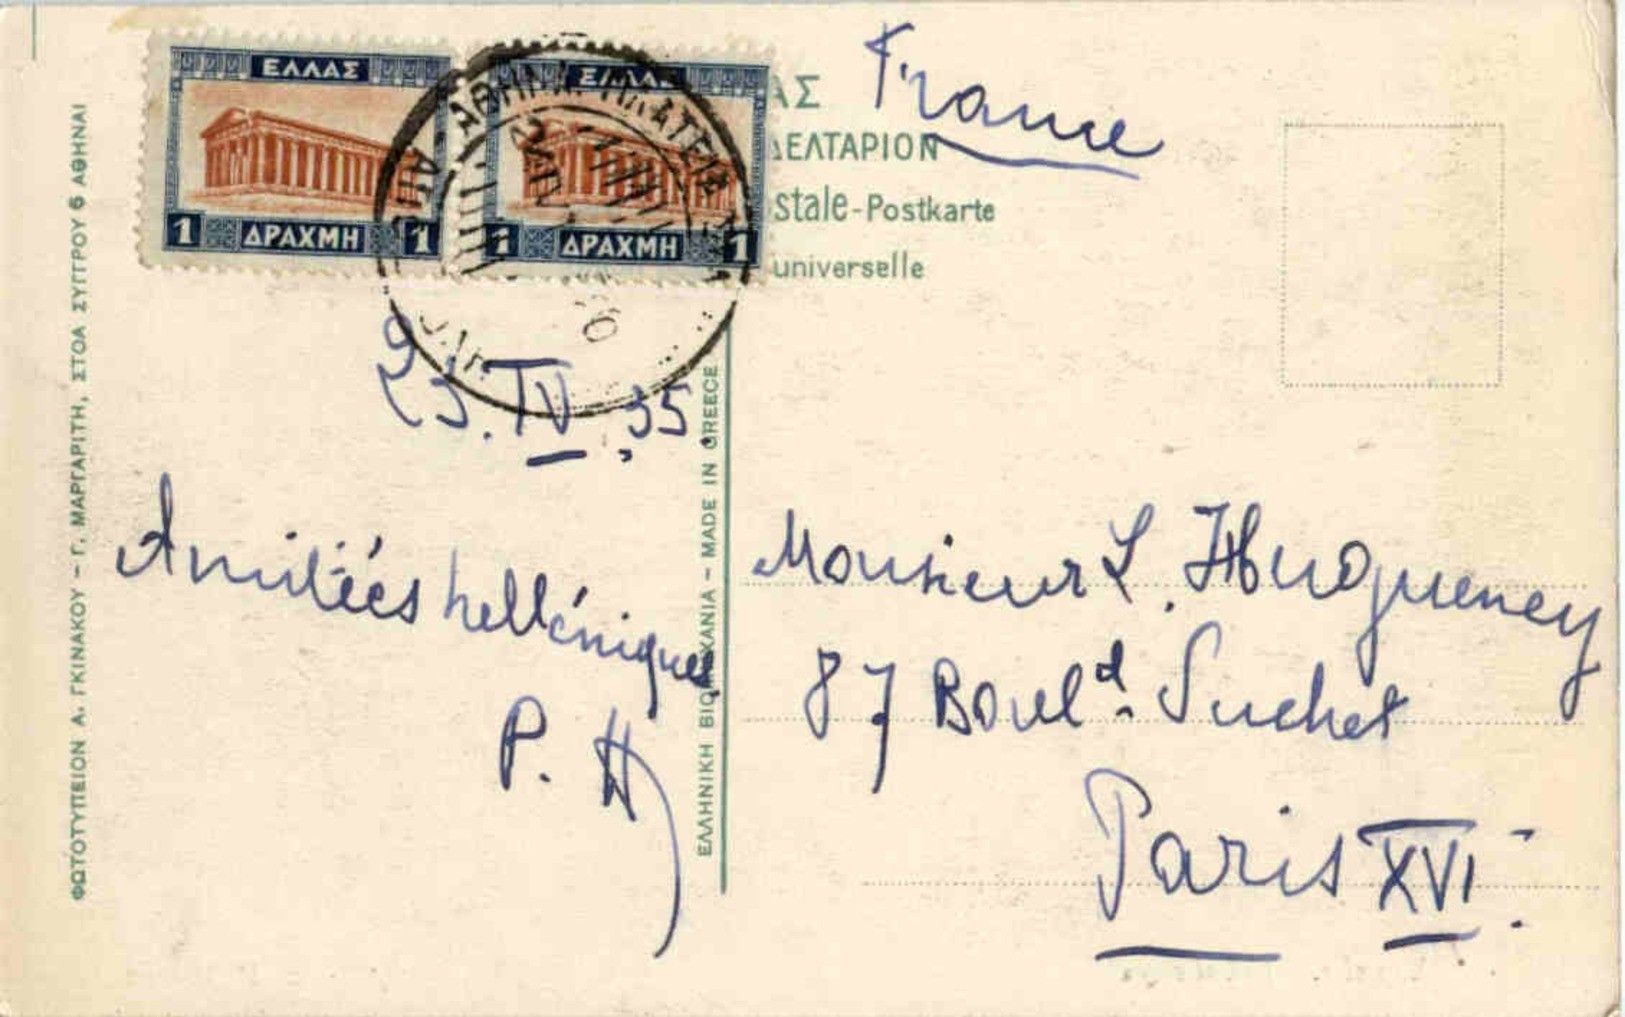 ΕΛΛΑΣ
1 ΔΡΑΧΜΗ 1
ΕΛΛΑΣ
1 ΔΡΑΧΜΗ 1
ΑΘΗΝΑΙ
France
ΑΣ
ΔΕΛΤΑΡΙΟΝ
stale-Postkarte
universelle
ΦΩΤΟΤΥΠΕΙΟΝ Α. ΓΚΙΝΑΚΟΥ – Γ. ΜΑΡΓΑΡΙΤΗ, ΣΤΟΑ ΣΥΓΓΡΟΥ 6 ΑΘΗΝΑΙ
ΕΛΛΗΝΙΚΗ ΒΙΟΜΗΧΑΝΙΑ – MADE IN GREECE
23. IV. 35.
Amitiés helléniques
P. H
Monsieur L. Hugueney
87 Bould. Suchet
Paris XVI.